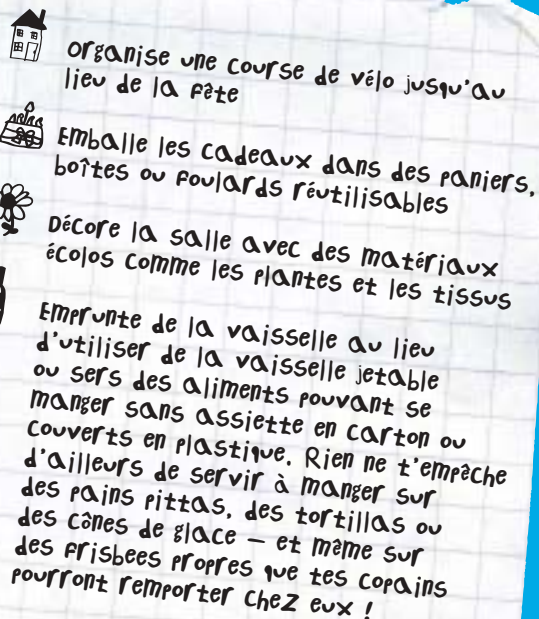 Organise une course de vélo jusqu'au
lieu de la fête
Emballe les cadeaux dans des paniers,
boîtes ou foulards réutilisables
Décore la salle avec des matériaux
écolos comme les plantes et les tissus
Emprunte de la vaisselle au lieu
d'utiliser de la vaisselle jetable
ou sers des aliments pouvant se
manger sans assiette en carton ou
couverts en plastique. Rien ne t'empêche
d'ailleurs de servir à manger sur
des pains pittas, des tortillas ou
des cônes de glace – et même sur
des frisbees propres que tes copains
pourront remporter chez eux !